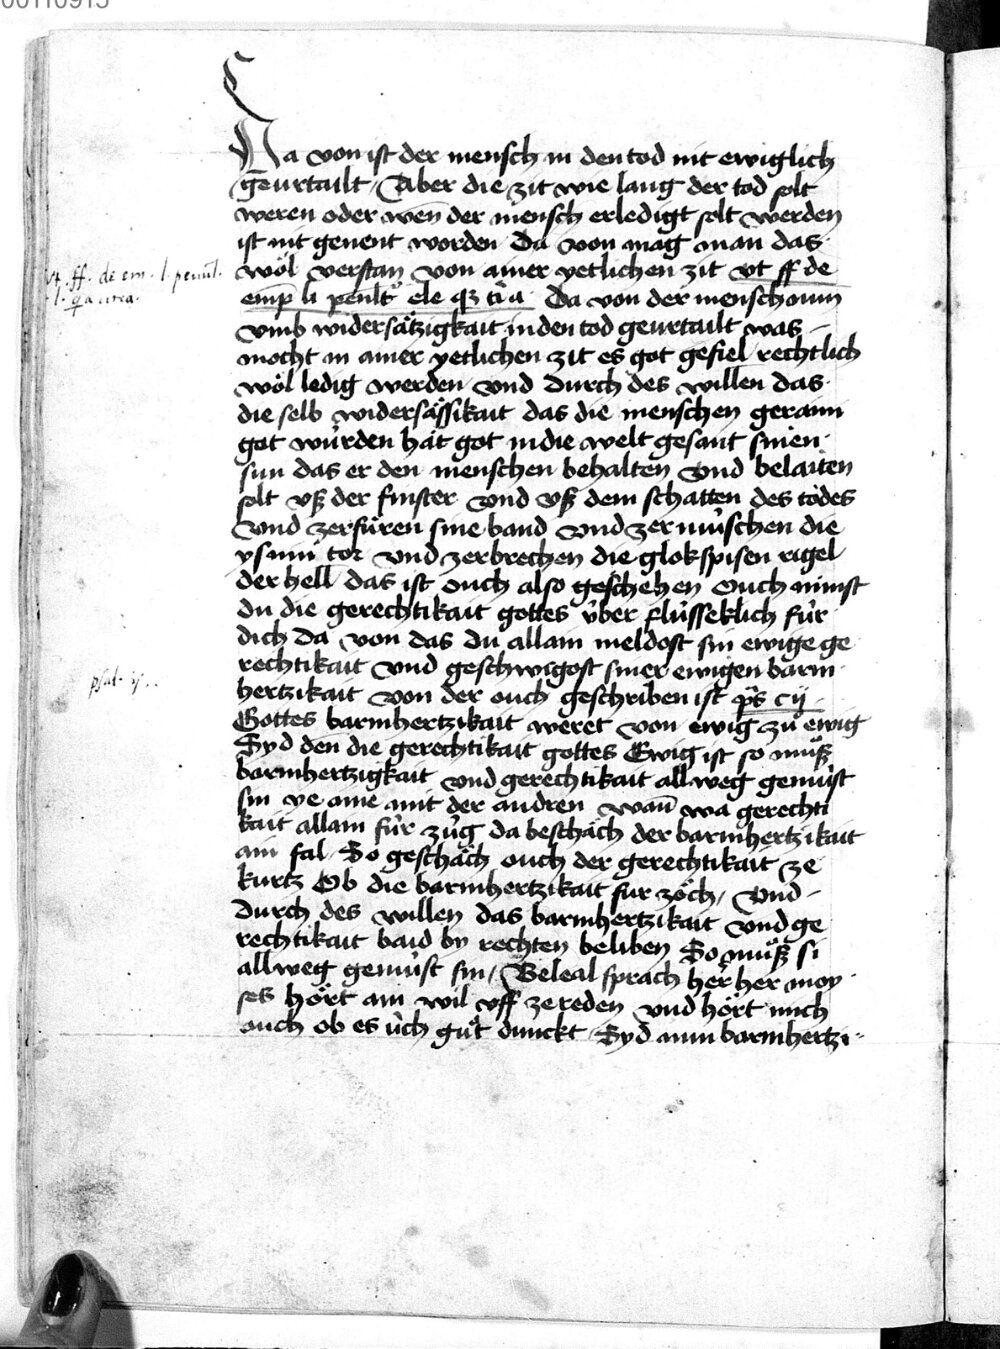 00110915
Da von ist der mensch in den tod nit ewiglich
geurtailt / Aber die zit wie lang der tod solt
weren oder wen̄ der mensch erledigt solt werden
ist nit genent worden Da von mag man das
wöl verstan von ainer yetlichen zit vt ff de
emp̄ li penlt' ele qꝫ
Da von der mensch
vmb widersätzigkait in den tod geurtailt was
mocht in ainer yetlichen zit es got gefiel rechtlich
wöl ledig werden vnd durch des willen das
die selb widersässikait das die menschen geraini
got wůrden hät got in die welt gesant sinen
sun das er den menschen behalten vnd belaiten
solt vß der finster vnd vß dem schatten des todes
vnd zerfüren sine band vnd zermüschen die
ysnin tor vnd zerbrechen die glokspisen rigel
der hell das ist ouch also geschehen Ouch nimst
du die gerechtikait gottes ůber flůsseklich fůr
dich da von das du allain meldost sin ewige ge
rechtikait vnd geschwigost siner ewigen barm
hertzikait von der ouch geschriben ist ps cij
Gottes barmhertzikait weret von ewig zů ewig
Syd den die gerechtikait gottes Ewig ist so můß
barmhertzigkait vnd gerechtikait allweg gemůst
sin ye aine mit der andren wan̄ wa gerechti
kait allain fůr zůg da beschäch der barmhertzikait
ain fal So geschäch ouch der gerechtikait ze
kurtz Ob die barmhertzikait fur zöch / Vnd
durch des willen das barmhertzikait vnd ge
rechtikait baid by rechten beliben So můß si
allweg gemůst sin / Beleal sprach her her moy
ses hört ain wil vff ze reden vnd hört mich
ouch ob es ůch gůt dunckt Syd nun barmhertzi
vt. ff. de em. l. penul.
psal.